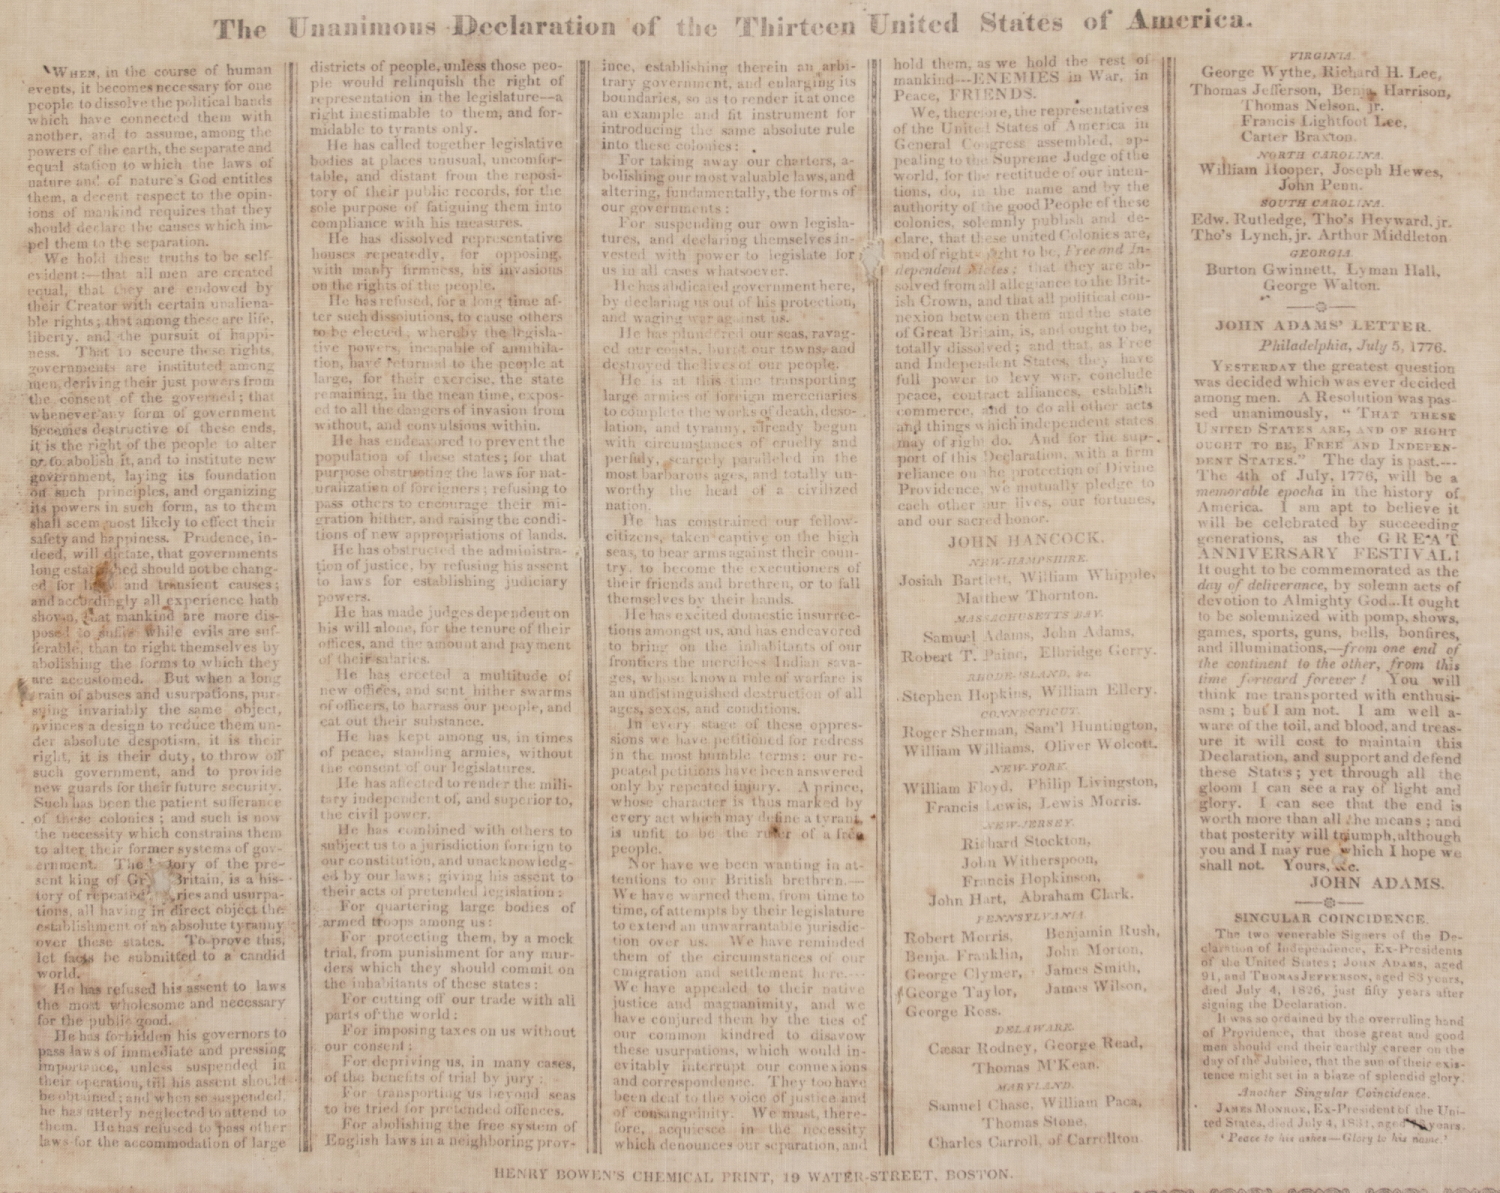 The Unanimous Declaration of the Thirteen United States of America.
WHEN, in the course of human
events, it becomes necessary for one
people to dissolve the political bands
which have connected them with
another, and to assume, among the
powers of the earth, the separate and
equal station to which the laws of
nature and of nature's God entitles
them, a decent respect to the opin-
ions of mankind requires that they
should declare the causes which im-
pel them to the separation.
We hold these truths to be self-
evident:—that all men are created
equal, that they are endowed by
their Creator with certain unaliena-
ble rights; that among these are life,
liberty, and the pursuit of happi-
ness. That to secure these rights,
governments are instituted among
men, deriving their just powers from
the consent of the governed; that
whenever any form of government
becomes destructive of these ends,
it is the right of the people to alter
or to abolish it, and to institute new
government, laying its foundation
on such principles, and organizing
its powers in such form, as to them
shall seem most likely to effect their
safety and happiness. Prudence, in-
deed, will dictate, that governments
long established should not be chang-
ed for and transient causes;
and accordingly all experience hath
shown, that mankind are more dis-
posed to suffer while evils are suf-
ferable, than to right themselves by
abolishing the forms to which they
are accustomed. But when a long
train of abuses and usurpations, pur-
suing invariably the same object,
evinces a design to reduce them un-
der absolute despotism, it is their
right, it is their duty, to throw off
such government, and to provide
new guards for their future security.
Such has been the patient sufferance
of these colonies; and such is now
the necessity which constrains them
to alter their former systems of gov-
ernment. The history of the pre-
sent king of Great Britain, is a his-
tory of repeated injuries and usurpa-
tions, all having in direct object the
establishment of an absolute tyranny
over these states. To prove this,
let facts be submitted to a candid
world.
He has refused his assent to laws
the most wholesome and necessary
for the public good.
He has forbidden his governors to
pass laws of immediate and pressing
importance, unless suspended in
their operation, till his assent should
be obtained; and when so suspended,
he has utterly neglected to attend to
them. He has refused to pass other
laws for the accommodation of large
districts of people, unless those peo-
ple would relinquish the right of
representation in the legislature—a
right inestimable to them, and for-
midable to tyrants only.
He has called together legislative
bodies at places unusual, uncomfor-
table, and distant from the reposi-
tory of their public records, for the
sole purpose of fatiguing them into
compliance with his measures.
He has dissolved representative
houses repeatedly, for opposing,
with manly firmness, his invasions
on the rights of the people.
He has refused, for a long time af-
ter such dissolutions, to cause others
to be elected; whereby the legisla-
tive powers, incapable of annihila-
tion, have returned to the people at
large, for their exercise, the state
remaining, in the mean time, expos-
ed to all the dangers of invasion from
without, and convulsions within.
He has endeavored to prevent the
population of these states; for that
purpose obstructing the laws for nat-
uralization of foreigners; refusing to
pass others to encourage their mi-
gration hither, and raising the condi-
tions of new appropriations of lands.
He has obstructed the administra-
tion of justice, by refusing his assent
to laws for establishing judiciary
powers.
He has made judges dependent on
his will alone, for the tenure of their
offices, and the amount and payment
of their salaries.
He has erected a multitude of
new offices, and sent hither swarms
of officers, to harrass our people, and
eat out their substance.
He has kept among us, in times
of peace, standing armies, without
the consent of our legislatures.
He has affected to render the mili-
tary independent of, and superior to,
the civil power.
He has combined with others to
subject us to a jurisdiction foreign to
our constitution, and unacknowledg-
ed by our laws; giving his assent to
their acts of pretended legislation:
For quartering large bodies of
armed troops among us:
For protecting them, by a mock
trial, from punishment for any mur-
ders which they should commit on
the inhabitants of these states:
For cutting off our trade with all
parts of the world:
For imposing taxes on us without
our consent:
For depriving us, in many cases,
of the benefits of trial by jury:
For transporting us beyond seas
to be tried for pretended offences.
For abolishing the free system of
English laws in a neighboring prov-
ince, establishing therein an arbi-
trary government, and enlarging its
boundaries, so as to render it at once
an example and fit instrument for
introducing the same absolute rule
into these colonies:
For taking away our charters, a-
bolishing our most valuable laws, and
altering, fundamentally, the forms of
our governments:
For suspending our own legisla-
tures, and declaring themselves in-
vested with power to legislate for
us in all cases whatsoever.
He has abdicated government here,
by declaring us out of his protection,
and waging war against us.
He has plundered our seas, ravag-
ed our coasts, burnt our towns, and
destroyed the lives of our people.
He is at this time transporting
large armies of foreign mercenaries
to complete the works of death, deso-
lation, and tyranny, already begun
with circumstances of cruelty and
perfidy, scarcely paralleled in the
most barbarous ages, and totally un-
worthy the head of a civilized
nation.
He has constrained our fellow-
citizens, taken captive on the high
seas, to bear arms against their coun-
try, to become the executioners of
their friends and brethren, or to fall
themselves by their hands.
He has excited domestic insurrec-
tions amongst us, and has endeavored
to bring on the inhabitants of our
frontiers the merciless Indian sava-
ges, whose known rule of warfare is
an undistinguished destruction of all
ages, sexes, and conditions.
In every stage of these oppres-
sions we have petitioned for redress
in the most humble terms: our re-
peated petitions have been answered
only by repeated injury. A prince,
whose character is thus marked by
every act which may define a tyrant,
is unfit to be the ruler of a free
people.
Nor have we been wanting in at-
tentions to our British brethren.—
We have warned them, from time to
time, of attempts by their legislature
to extend an unwarrantable jurisdic-
tion over us. We have reminded
them of the circumstances of our
emigration and settlement here.---
We have appealed to their native
justice and magnanimity, and we
have conjured them by the ties of
our common kindred to disavow
these usurpations, which would in-
evitably interrupt our connexions
and correspondence. They too have
been deaf to the voice of justice and
of consanguinity. We must, there-
fore, acquiesce in the necessity
which denounces our separation, and
hold them, as we hold the rest of
mankind---ENEMIES in War, in
Peace, FRIENDS.
We, therefore, the representatives
of the United States of America in
General Congress assembled, ap-
pealing to the Supreme Judge of the
world, for the rectitude of our inten-
tions, do, in the name and by the
authority of the good People of these
colonies, solemnly publish and de-
clare, that these united Colonies are,
and of right ought to be, Free and In-
dependent States: that they are ab-
solved from all allegiance to the Brit-
ish Crown, and that all political con-
nexion between them and the state
of Great Britain, is, and ought to be,
totally dissolved; and that, as Free
and Independent States, they have
full power to levy war, conclude
peace, contract alliances, establish
commerce, and to do all other acts
and things which independent states
may of right do. And for the sup-
port of this Declaration, with a firm
reliance on the protection of Divine
Providence, we mutually pledge to
each other our lives, our fortunes,
and our sacred honor.
JOHN HANCOCK.
NEW-HAMPSHIRE.
Josiah Bartlett, William Whipple,
Matthew Thornton.
MASSACHUSETTS BAY.
Samuel Adams, John Adams,
Robert T. Paine, Elbridge Gerry.
RHODE-ISLAND, &c.
Stephen Hopkins, William Ellery.
CONNECTICUT.
Roger Sherman, Sam'l Huntington,
William Williams, Oliver Wolcott.
NEW-YORK.
William Floyd, Philip Livingston,
Francis Lewis, Lewis Morris.
NEW-JERSEY.
Richard Stockton,
John Witherspoon,
Francis Hopkinson,
John Hart, Abraham Clark.
PENNSYLVANIA.
Robert Morris, Benjamin Rush,
Benja. Franklin, John Morton,
George Clymer, James Smith,
George Taylor, James Wilson,
George Ross.
DELAWARE.
Cæsar Rodney, George Read,
Thomas M'Kean.
MARYLAND.
Samuel Chase, William Paca,
Thomas Stone,
Charles Carroll, of Carrollton
VIRGINIA.
George Wythe, Richard H. Lee,
Thomas Jefferson, Benja. Harrison,
Thomas Nelson, jr.
Francis Lightfoot Lee,
Carter Braxton.
NORTH CAROLINA.
William Hooper, Joseph Hewes,
John Penn.
SOUTH CAROLINA.
Edw. Rutledge, Tho's Heyward, jr.
Tho's Lynch, jr. Arthur Middleton
GEORGIA
Burton Gwinnett, Lyman Hall,
George Walton.
JOHN ADAMS' LETTER.
Philadelphia, July 5, 1776.
YESTERDAY the greatest question
was decided which was ever decided
among men. A Resolution was pas-
sed unanimously, "THAT THESE
UNITED STATES ARE, AND OF RIGHT
OUGHT TO BE, FREE AND INDEPEN-
DENT STATES." The day is past.---
The 4th of July, 1776, will be a
memorable epocha in the history of
America. I am apt to believe it
will be celebrated by succeeding
generations, as the GREAT
ANNIVERSARY FESTIVAL!
It ought to be commemorated as the
day of deliverance, by solemn acts of
devotion to Almighty God...It ought
to be solemnized with pomp, shows,
games, sports, guns, bells, bonfires,
and illuminations,—from one end of
the continent to the other, from this
time forward forever! You will
think me transported with enthusi-
asm; but I am not. I am well a-
ware of the toil, and blood, and treas-
ure it will cost to maintain this
Declaration, and support and defend
these States; yet through all the
gloom I can see a ray of light and
glory. I can see that the end is
worth more than all the means; and
that posterity will triumph, although
you and I may rue which I hope we
shall not. Yours, &c.
JOHN ADAMS.
SINGULAR COINCIDENCE.
The two venerable Signers of the De-
claration of Independence, Ex-Presidents
of the United States; JOHN ADAMS, aged
91, and THOMAS JEFFERSON, aged 83 years,
died July 4, 1826, just fifty years after
signing the Declaration.
It was so ordained by the overruling hand
of Providence, that those great and good
men should end their earthly career on the
day of the Jubilee, that the sun of their exis-
tence might set in a blaze of splendid glory.
Another Singular Coincidence.
JAMES MONROE, Ex-President of the Uni-
ted States, died July 4, 1831, aged years.
'Peace to his ashes—Glory to his name.'
HENRY BOWEN'S CHEMICAL PRINT, 19 WATER-STREET, BOSTON.